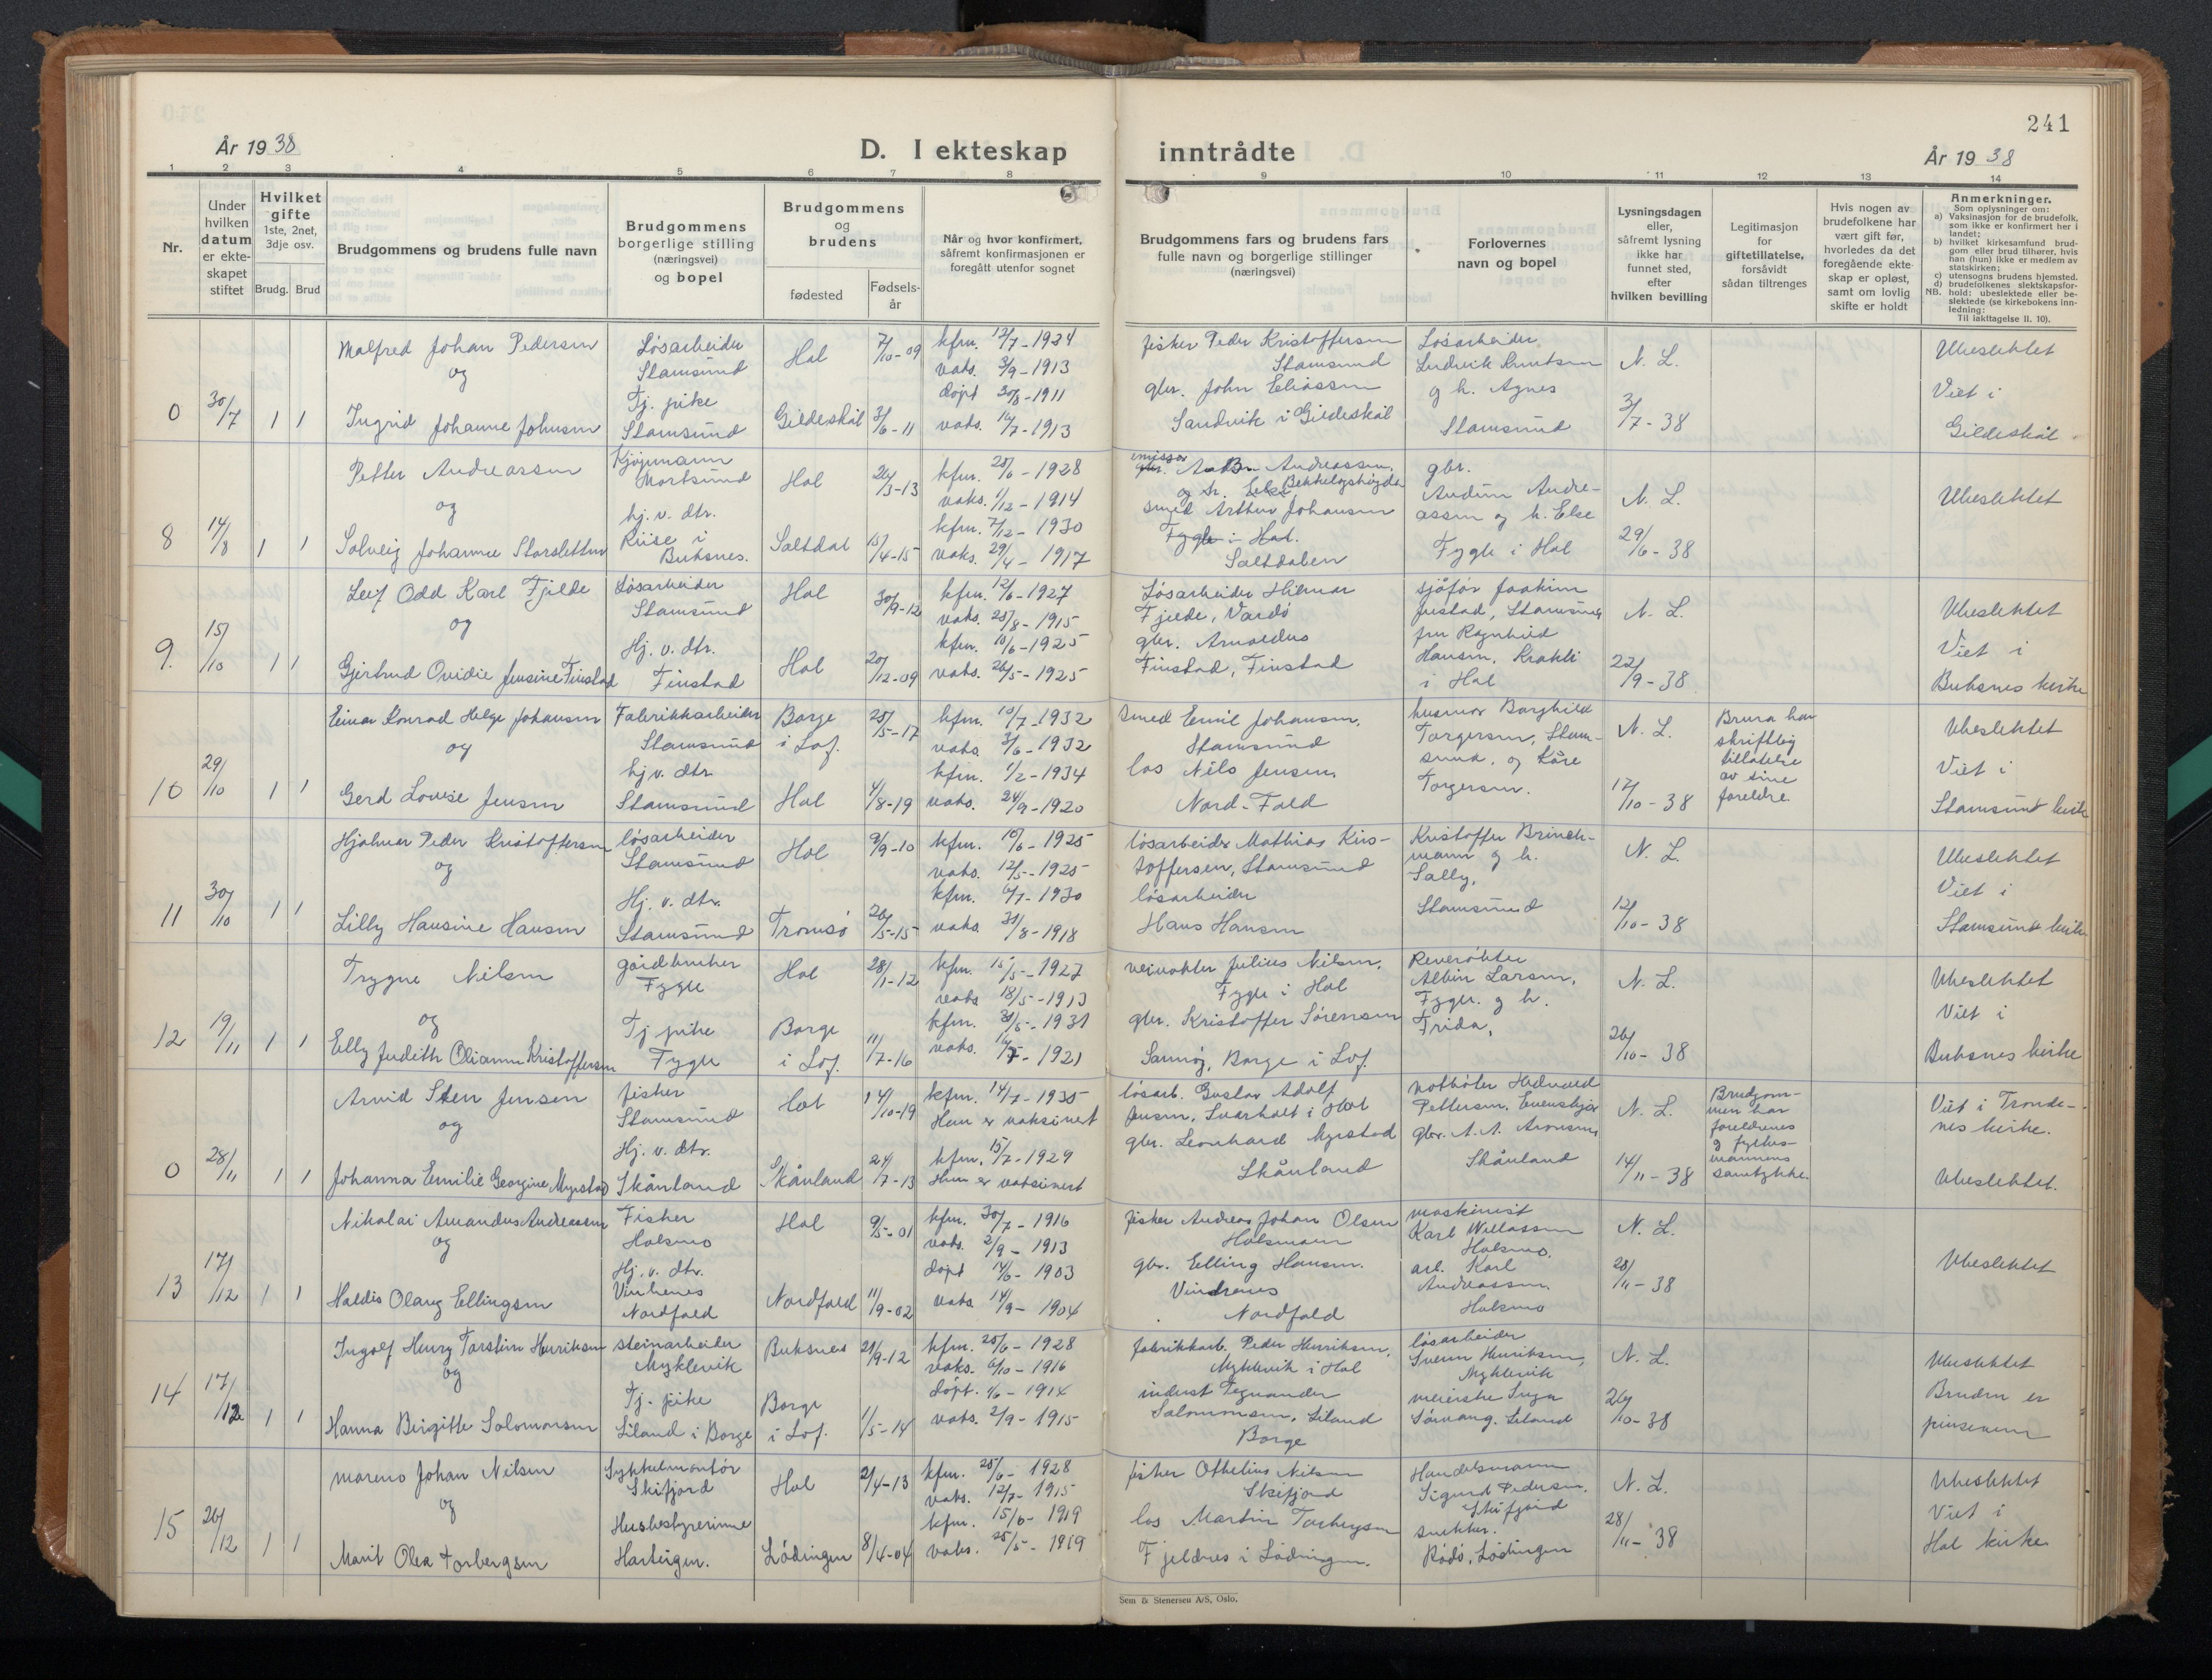 241
År 1938
D. I ekteskap inntrådte
År 1938
1 2 3 4 5 6 7 8 9 10 11 12 13 14
Nr.
Under hvilken datum er ekteskapet stiftet
Hvilket gifte 1ste, 2net, 3dje osv.
Brudg. Brud
Brudgommens og brudens fulle navn
Brudgommens borgerlige stilling (næringsvei) og bopel
Brudgommens og brudens
fødested
Fødselsår
Når og hvor konfirmert, såfremt konfirmasjonen er foregått utenfor sognet
Brudgommens fars og brudens fars fulle navn og borgerlige stillinger (næringsvei)
Forlovernes navn og bopel
Lysningsdagen eller, såfremt lysning ikke har funnet sted, efter hvilken bevilling
Legitimasjon for giftetillatelse, forsåvidt sådan tiltrenges
Hvis nogen av brudefolkene har vært gift før, hvorledes da det foregående ekteskap er opløst, samt om lovlig skifte er holdt
Anmerkninger.
Som oplysninger om:
a) Vaksinasjon for de brudefolk, som ikke er konfirmert her i landet;
b) hvilket kirkesamfund brudgom eller brud tilhører, hvis han (hun) ikke er medlem av statskirken;
c) utensogns brudens hjemsted.
d) brudefolkenes slektskapsforhold: ubeslektede eller beslektede (se kirkebokens innledning:
NB.
Til iakttagelse II. 10).
0 30/7 1 1
Malfred Johan Pedersen
og
Ingrid Johanne Johnsen
Løsarbeider
Stamsund
Tj. pike
Stamsund
Hol 7/10-09
Gildeskål 3/6-11
kfm. 12/7-1924
vaks. 3/9-1913
døpt 30/8-1911
vaks. 14/7-1913
fisker Peder Kristoffersen
Stamsund
gbr. John Eliassen
Sandvik i Gildeskål
Løsarbeider
Ludvik Knutsen
og h. Agnes
Stamsund
N. L.
3/7-38
Ubeslektet
Viet i
Gildeskål
8 14/8 1 1
Petter Andreassen
og
Solveig Johanne Storsletten
Kjøpmann
Mortsund
hj. v. dtr.
Riise i
Buksnes.
Hol 26/3-13
Saltdal 15/4-15
kfm. 25/6-1928
vaks. 1/12-1914
kfm. 7/12-1930
vaks. 29/4-1917
Andreassen
smed Arthur Johansen
Fygle i Hol.
Saltdalen
gbr.
Audun Andreassen og h. Else
Fygle i Hol
N. L.
29/6-38
Ubeslektet
9. 15/10 1 1
Leif Odd Karl Fjelde
og
Gjertrud Ovidie Jensine Finstad
Løsarbeider
Stamsund
Hj. v. dtr.
Finstad
Hol 30/9-12
Hol 20/12-09
kfm. 12/6-1927
vaks. 25/8-1915
kfm. 10/6-1925
vaks. 26/5-1925
Løsarbeider Hilmar
Fjelde, Vardö
gbr. Arnoldus
Finstad, Finstad
sjåfør Joakim
Justad, Stamsund
fru Ragnhild
Hansen, Krakli
i Hol
N. L.
22/9-38
Ubeslektet
Viet i
Buksnes kirke
10 29/10 1 1
Einar Konrad Helge Johansen
og
Gerd Lovise Jensen
Fabrikkarbeider
Stamsund
hj. v. dtr.
Stamsund
Borge i Lof. 25/5-17
Hol 4/8-19
kfm. 10/7-1932
vaks. 3/6-1932
kfm. 1/2-1934
vaks. 24/9-1920
Smed Emil Johansen,
Stamsund
los Nils Jensen,
Nord-Fold
husmor Borghild
Torgersen, Stamsund, og Kåre
Torgersen.
N. L.
17/10-38
Brura har
skriftlig
tillatelse
av sine
foreldre.
Ubeslektet
Viet i
Stamsund kirke
11 30/10 1 1
Hjalmar Peder Kristoffersen
og
Lilly Hansine Hansen
løsarbeider
Stamsund
Hj. v. dtr.
Stamsund
Hol 9/9-10
Tromsø 26/5-15
kfm. 10/6-1925
vaks. 12/5-1925
kfm. 6/7-1930
vaks. 31/8-1918
løsarbeider Mathias Kristoffersen, Stamsund
løsarbeider
Hans Hansen
Kristoffer Brinchmann og h.
Sally,
Stamsund
N. L.
12/10-38
Ubeslektet
Viet i
Stamsund kirke
12 19/11 1 1
Trygve Nilsen
og
Elly Judith Olianna Kristoffersen
gårdbruker
Fygle
Tj pike
Fygle
Hol 28/1-12
Borge i Lof. 11/7-16
kfm. 15/5-1927
vaks 18/5-1913
kfm. 31/5-1931
vaks. 1921
veivokter Julius Nilsen,
Fygle i Hol
gbr. Kristoffer Sørensen
Borge i Lof.
Reverøkter
Albin Larsen,
Fygle. og h.
Frida,
N. L.
26/10-38
Ubeslektet
Viet i
Buksnes kirke
0 28/11 1 1
Arvid Sten Jensen
og
Johanna Emilie Georgine Myrstad
fisker
Stamsund
Hj. v. dtr.
Skånland
Hol 14/10-19
Skånland 24/7-13
kfm. 14/7-1935
Han er vaksinert
kfm. 15/7-1929
Hun er vaksinert
løsarb. Gustav Adolf
Jensen, Svarholt i Hol
gbr. Leonhard Myrstad
Skånland
notbøter Hedvald
Pettersen, Evenskjer
gbr. A. A. Aronsen
Skånland
N. L.
14/11-38
Brudgommen har
foreldrenes
og fylkesmannens
samtykke.
Viet i Trondenes kirke.
Ubeslektet.
13 17/12 1 1
Nikolai Amandus Andreassen
og
Haldis Olaug Ellingsen
Fisker
Holsmo
Hj. v. dtr.
Vinkenes
Nordfold
Hol 9/5-01
Nordfold 11/9-02
kfm. 30/7-1916
vaks. 2/9-1913
døpt 14/6-1903
vaks 14/9-1904
fisker Andreas Johan Olsen
Holsmoen
gbr. Elling Hansen.
Vindenes
Nordfold
maskinist
Karl Willassen
Holsmo.
arb. Karl
Andreassen.
Holsmo
N. L.
28/11-38
Ubeslektet
14 17/12 1 1
Ingolf Henry Torstein Henriksen
og
Hanna Birgitte Solomonsen
steinarbeider
Myklevik
Tj. pike
Liland i Borge
Buksnes 21/9-12
Borge i Lof. 1/5-14
kfm. 25/6-1928
vaks. 6/10-1916
døpt. 1/6-1914
vaks. 2/9-1915
fabrikkarb. Peder Henriksen,
Myklevik i Hol
inderst Tegnander
Salomonsen, Liland
Borge
løsarbeider
Sverre Henriksen,
Myklevik
meierske Inga
Sörvang. Liland
N. L.
26/10-38
Ubeslektet
Bruden er
pinsevenn
15 26/12 1 1
Mareno Johan Nilsen
og
Marit Olea Torbergsen
Sykkelmontör
Skifjord
Husbestyrerinne
Hartvigen.
Hol 2/4-13
Lödingen 8/4-04
kfm. 25/6-1928
vaks. 12/7-1915
kfm. 15/6-1919
vaks. 25/5-1919
fisker Othelius Nilsen
Skifjord
los Martin Torbergsen
Fjeldnes i Lödingen.
Handelsmann
Sigurd Pedersen.
Skifjord
snekker.
Rödö, Lödingen
N. L.
28/11-38
Ubeslektet
Viet i
Hol kirke
Sem & Stenersen A/S, Oslo.